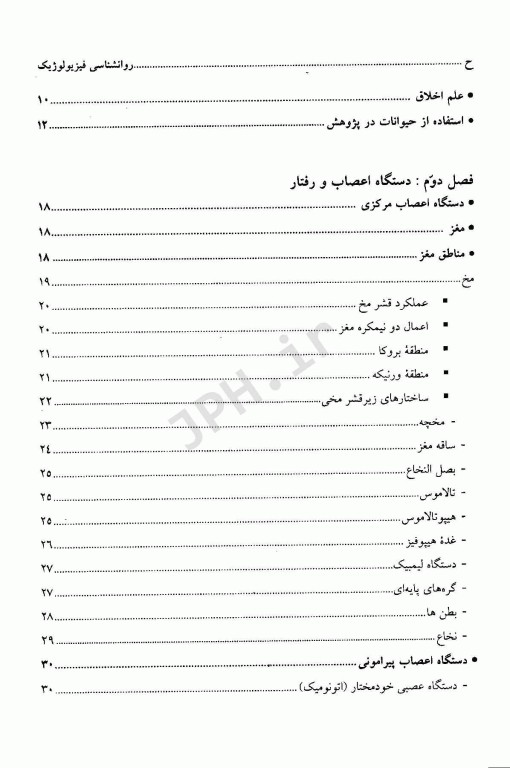 ح ........ روانشناسی فیزیولوژیک
• علم اخلاق ........ ۱۰
• استفاده از حیوانات در پژوهش ........ ۱۲
فصل دوّم : دستگاه اعصاب و رفتار
• دستگاه اعصاب مرکزی ........ ۱۸
• مغز ........ ۱۸
• مناطق مغز ........ ۱۸
مخ ........ ۱۹
▪ عملکرد قشر مخ ........ ۲۰
▪ اعمال دو نیمکره مغز ........ ۲۰
▪ منطقهٔ بروکا ........ ۲۱
▪ منطقهٔ ورنیکه ........ ۲۱
▪ ساختارهای زیرقشر مخی ........ ۲۲
- مخچه ........ ۲۳
- ساقه مغز ........ ۲۴
- بصل النخاع ........ ۲۵
- تالاموس ........ ۲۵
- هیپوتالاموس ........ ۲۵
- غدهٔ هیپوفیز ........ ۲۶
- دستگاه لیمبیک ........ ۲۷
- گره‌های پایه‌ای ........ ۲۷
- بطن ها ........ ۲۸
- نخاع ........ ۲۹
• دستگاه اعصاب پیرامونی ........ ۳۰
- دستگاه عصبی خودمختار (اتونومیک) ........ ۳۰
JPH.ir